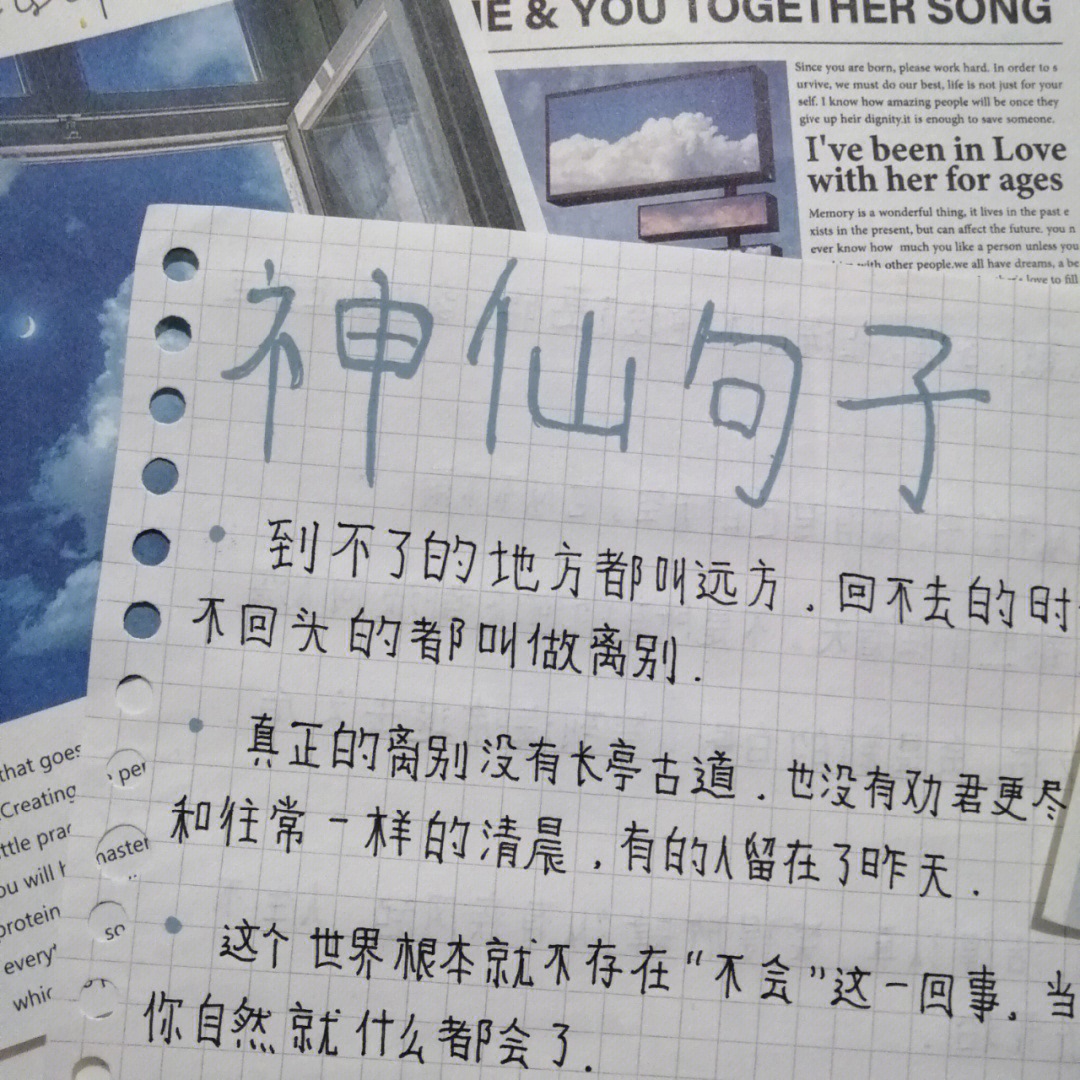 E & YOU TOGETHER SONG
Since you are born, please work hard. In order to s
urvive, we must do our best, life is not just for your
self. I know how amazing people will be once they
give up heir dignity.it is enough to save someone.
I've been in Love
with her for ages
Memory is a wonderful thing, it lives in the past e
xists in the present, but can affect the future. you n
ever know how much you like a person unless you
with other people.we all have dreams, a be
love to fill
神仙句子
到不了的地方都叫远方.回不去的时
不回头的都叫做离别.
真正的离别没有长亭古道.也没有劝君更尽
和往常一样的清晨,有的人留在了昨天.
这个世界根本就不存在“不会”这一回事。当
你自然就什么都会了.
that goes
Creating
ttle prac
ou will h
protein
every
whic
per
master
so